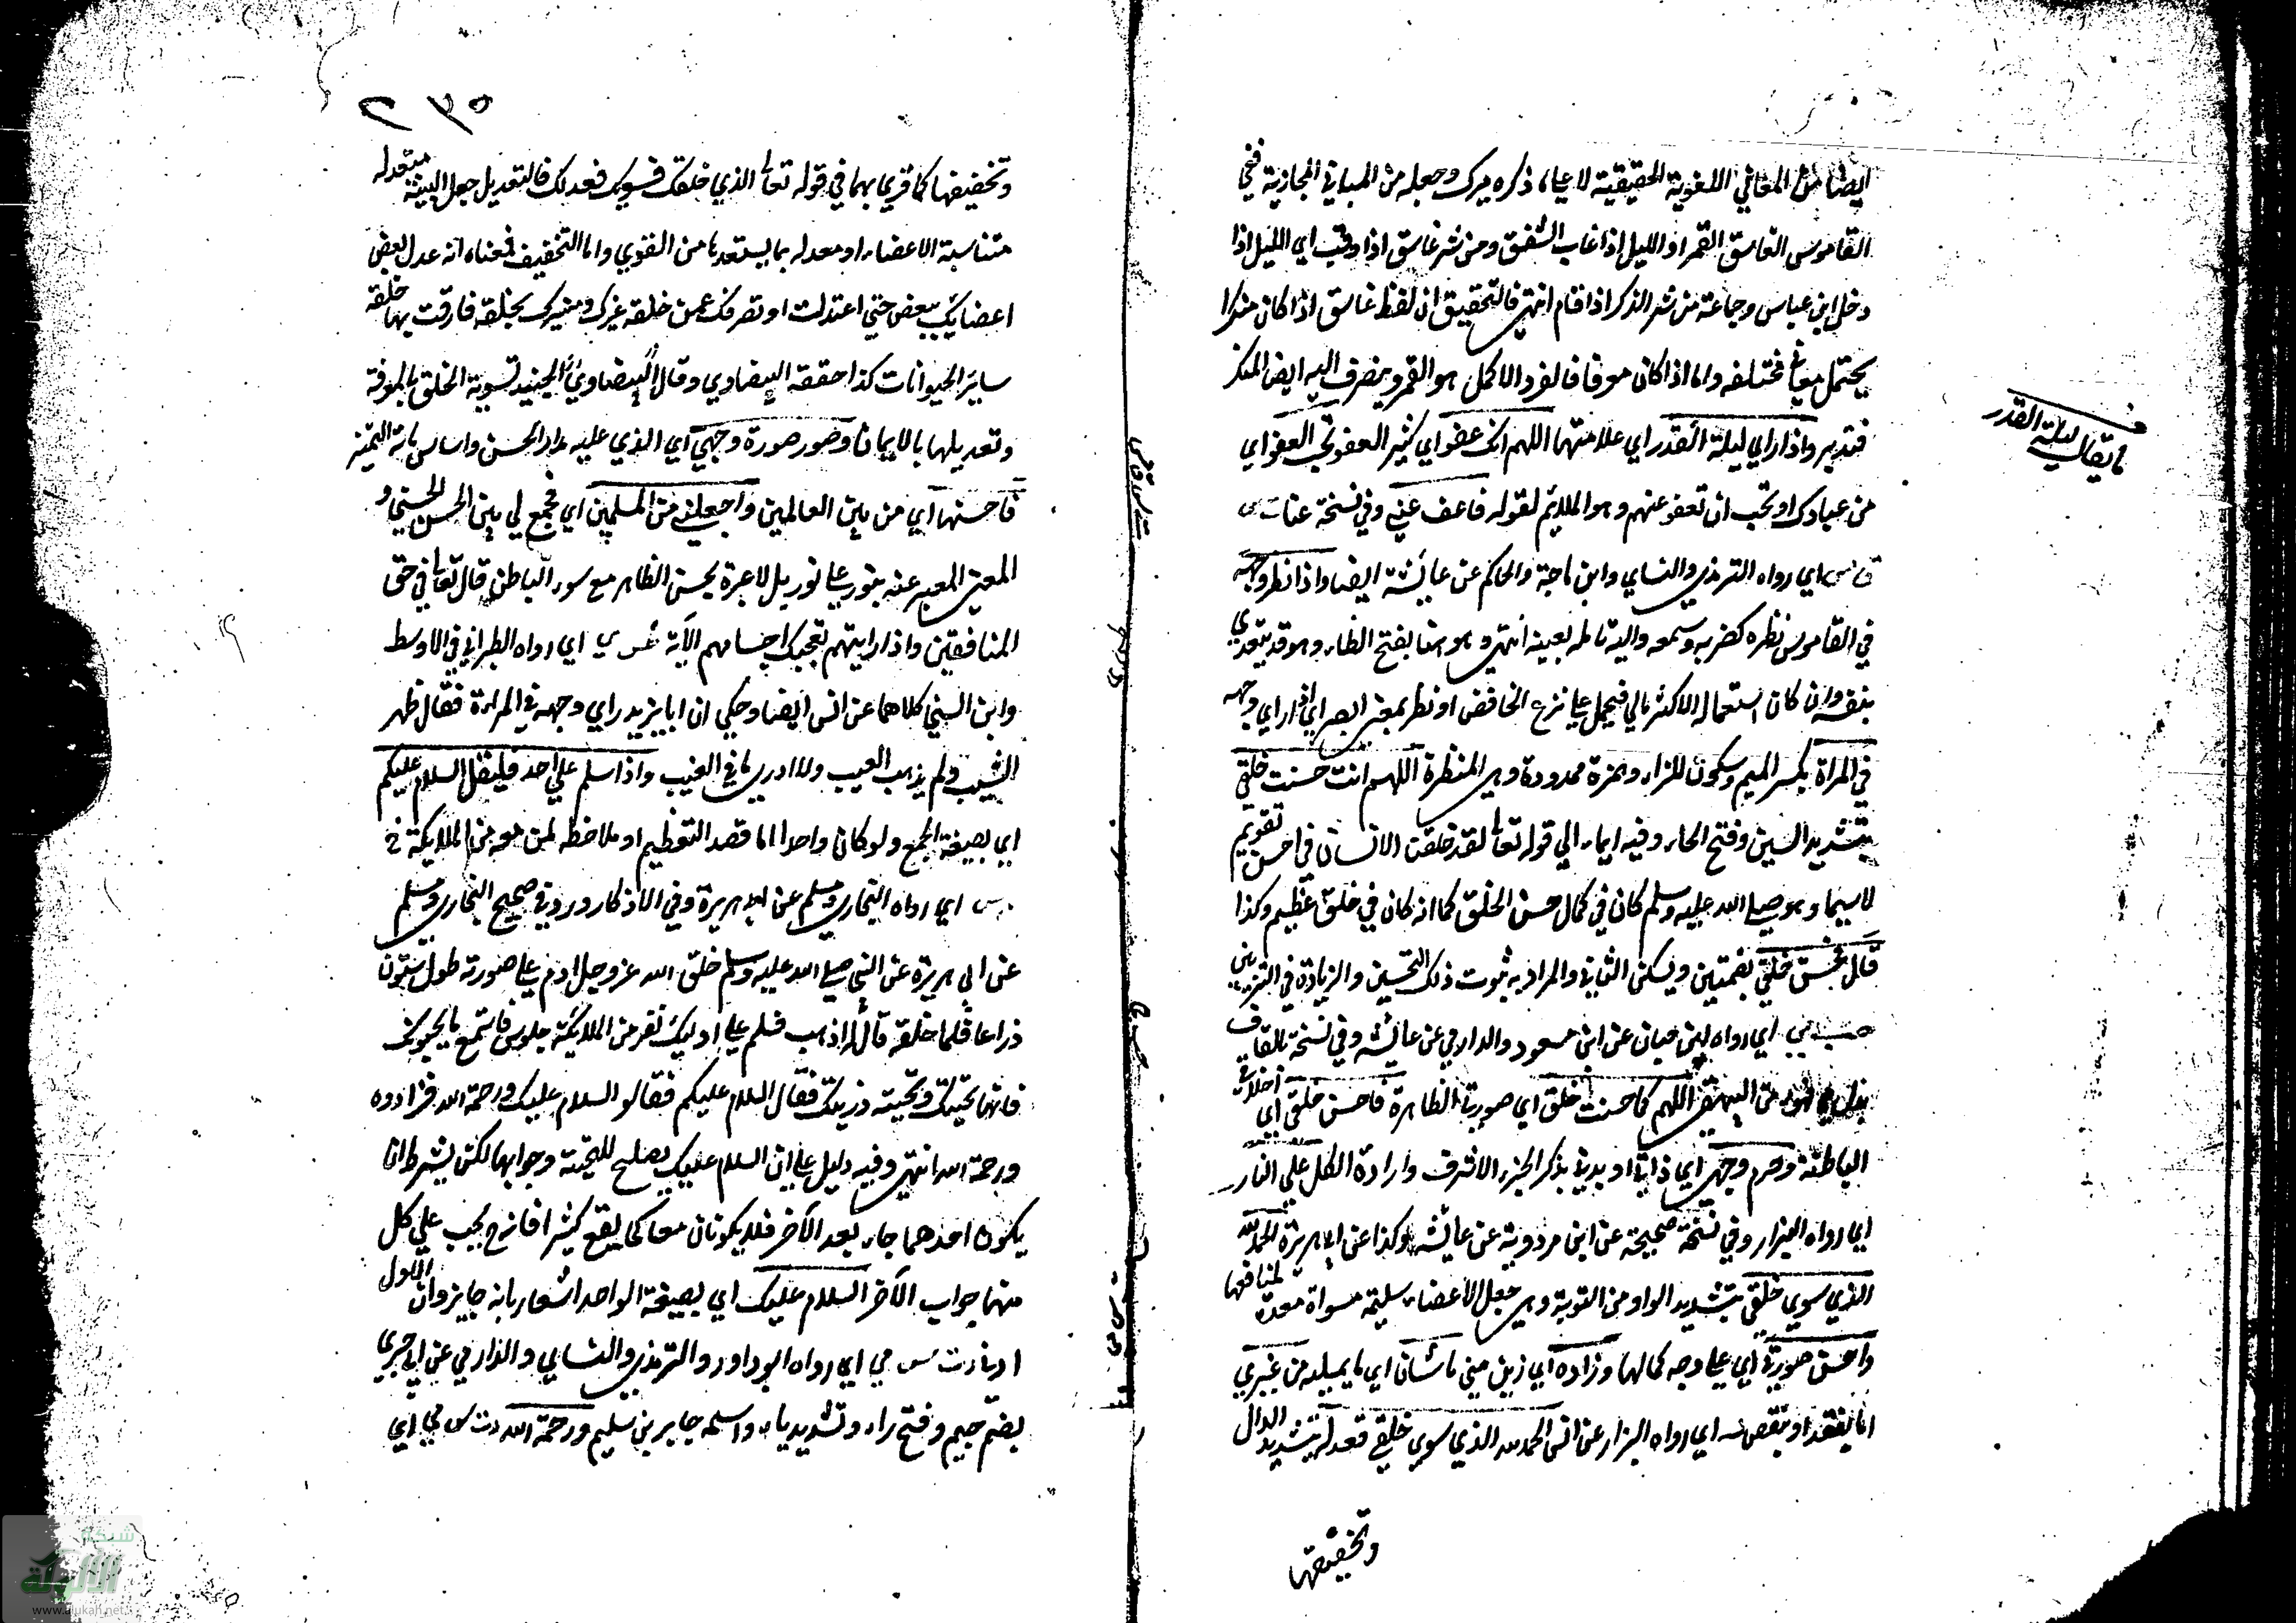 ايضا من المعاني اللغوية الحقيقية لا علي ما ذكره ميرك وجعله من المباني المجازية ففي
القاموس الغاسق القمر او الليل اذا غاب الشفق ومن شر غاسق اذا وقب اي الليل اذا
دخل ابن عباس وجماعة من شر الذكر اذا قام انتهي فالتحقيق ان لفظ غاسق اذا كان منكرا
يحتمل معاني مختلفه واما اذا كان معرفا فالفرد الاكمل هو القمر وينصرف اليه ايضا المنكر
فتدبر واذا راي ليلة القدر اي علامتها اللهم انك عفو اي كثير العفو تحب العفو اي
من عبادك او تحب ان تعفو عنهم وهو الملايم لقوله فاعف عني وفي نسخة عنا ت س
ق مس اي رواه الترمذي والنساي وابن ماجة والحاكم عن عايشة ايضا واذا نظر وجهه
في القاموس نظره كضربه وسمعه واليه تامله بعينه انتهي وهو هنا بفتح الظاء وهو قد يتعدي
بنفسه وان كان استعماله الاكثر بالي فيحمل علي نزع الخافض او نظر بمعني ابصر اي اذا راي وجهه
في المراة بكسر الميم وسكون للراء وهمزة ممدودة وهي المنظرة اللهم انت حسنت خلقي
بتشديد السين وفتح الحاء وفيه ايماء الي قوله تعالي لقد خلقنا الانسان في احسن تقويم
لاسيما وهو صلي الله عليه وسلم كان في كمال حسن الخلق كما انه كان في خلق عظيم وكذا
قال فحسن خلقي بضمتين ويسكن الثاني والمراد به ثبوت ذلك التحسين والزيادة في التزيين
حب مي اي رواه ابن حبان عن ابن مسعود والدارمي عن عايشة وفي نسخة بالقاف
البيهقي اللهم كما حسنت خلقي اي صورتي الظاهرة فاحسن خلقي اي اخلاقي
الباطنة وحرم وجهي اي ذاتي او بدني بذكر الجزء الاشرف وارادة الكل علي النار
اي رواه البزار وفي نسخة صحيحة عن ابن مردوية عن عايشة وكذا عن ابي هريرة الحمد لله
الذي سوي خلقي بتشديد الواو من التسوية وهي جعل الاعضاء سليمة مسواة معدة لمنافعها
واحسن صورتي اي علي وجه كمالها وزاده اي زين مني ما شان اي ما يميله من غيري
اما بفقد او بنقص اي رواه البزار عن انس الحمد لله الذي سوي خلقي فعدله بتشديد الدال
وتخفيفها
ما يقال ليلة القدر
٢٣٥
وتخفيفها كما قري بهما في قوله تعالي الذي خلقك فسويك فعدلك فالتعديل جعل البنية معتدلة
متناسبة الاعضاء او معدله بما يستعدها من القوي واما التخفيف فمعناه انه عدل بعض
اعضايك ببعض حتي اعتدلت او تصرفك عن خلقه غيرك وميزك بخلقه فارقت بها خلقة
ساير الحيوانات كذا حققه البيضاوي وقال الجنيد تسوية الخلق بالمعرفة
وتعديلها بالايمان وصور صورة وجهي اي الذي عليه مدار الحسن واساس مادة التميز
فاحسنها اي من بين العالمين واجعلني من المسلمين اي فجمع لي بين الحسن الحسي و
المعني المعبر عنه بنور علي نور بل لا عبرة بحسن الظاهر مع سوء الباطن قال تعالي في حق
المنافقين واذا رايتهم تعجبك اجسامهم الآية طس ي اي رواه الطبراني في الاوسط
وابن السني كلاهما عن انس ايضا وحكي ان ابا يزيد راي وجهه في المراة فقال ظهر
الشيب ولم يذهب العيب ولا ادري ما في الغيب واذا سلم علي احد فليقل السلام عليكم
اي بصيغة الجمع ولو كان واحدا اما قصد التعظيم او ملاحظه لمن معه من الملايكة خ
م س اي رواه البخاري ومسلم عن ابي هريرة وفي الاذكار وروي في صحيح البخاري ومسلم
عن ابي هريرة عن النبي صلي الله عليه وسلم خلق الله عز وجل ادم علي صورته طوله ستون
ذراعا فلما خلقه قال له اذهب فسلم علي اوليك نفر من الملايكة جلوس فاستمع ما يحيونك
فانها تحيتك وتحية ذريتك فقال السلام عليكم فقالو السلام عليك ورحمة الله فزادوه
ورحمة الله انتهي وفيه دليل علي ان السلام عليك يصلح للتحية وجوابها لكن بشرط ان
يكون احدهما جاء بعد الآخر فلا يكونان معا كما يقع كثيرا فانه يجب علي كل
منهما جواب الآخر السلام عليك اي بصيغة الواحد اشعار بانه جايز وان الاول
اولي د ت س مي اي رواه ابو داود والترمذي والنساي والدارمي عن ابي جري
بضم جيم وفتح راء وتشديد ياء واسمه جابر بن سليم ورحمة الله د ت س مي اي
شبكة
الألوكة
www.alukah.net